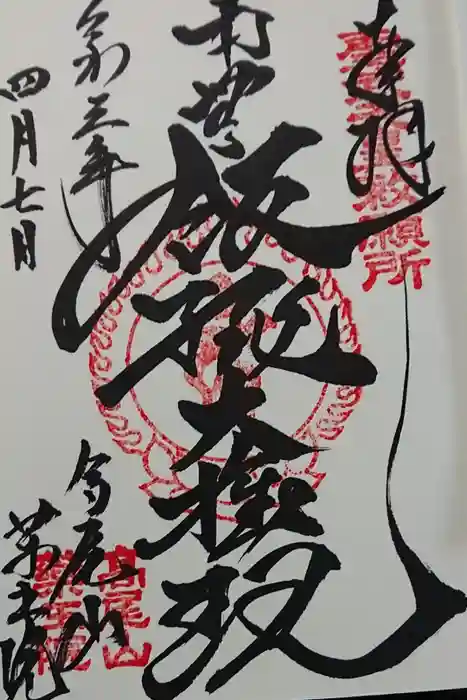 奉拝
南無飯縄大権現
令和三年
四月七日
高尾山
薬王院
高尾山
薬王院